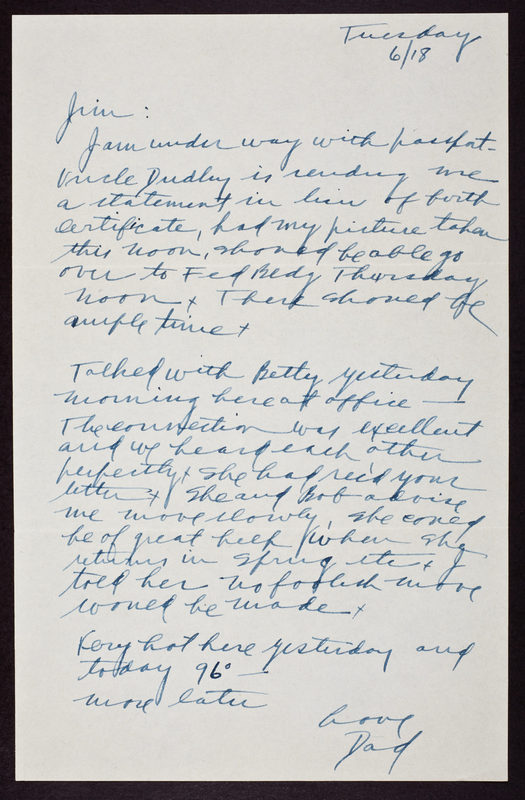 Tuesday
6/18
Jim :
I am under way with passport -
Uncle Dudley is sending me
a statement in lieu of birth
certificate, had my picture taken
this noon, should be able go
over to Fed Bldg Thursday
noon x There should be
ample time x
Talked with Betty yesterday
morning here at office —
The connection was excellent
and we heard each other
perfectly x She had rec'd your
letter x She and Bob advise
me move slowly, she could
be of great help when she
returns in Spring etc x I
told her no foolish move
would be made x
Very hot here yesterday and
today 96° —
more later
Love
Dad